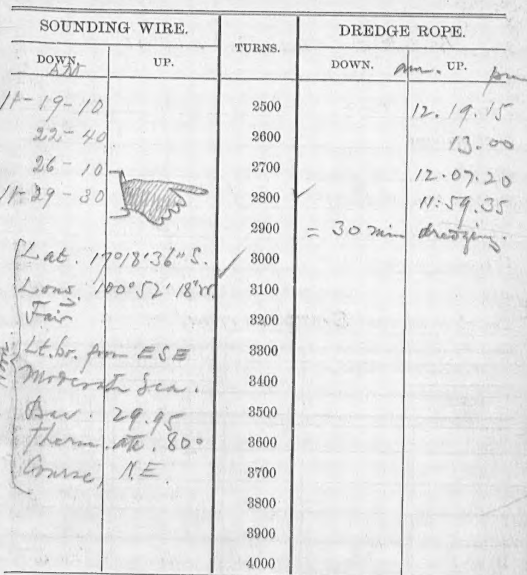 SOUNDING WIRE. TURNS. DREDGE ROPE.
DOWN. UP. DOWN. UP.
AM am. pm
11-19-10 2500 12.19.15
22-40 2600 13.00
26-10 2700 12.07.20
11-29-30 2800 11.59.35
2900 = 30 min dredging.
Lat. 17°18'36" S. 3000
Long. 100°52'18" W. 3100
Fair 3200
Lt. br. from ESE 3300
Moderate Sea. 3400
Bar. 29.95 3500
Therm. att. 80° 3600
Course, N.E. 3700
3800
3900
4000